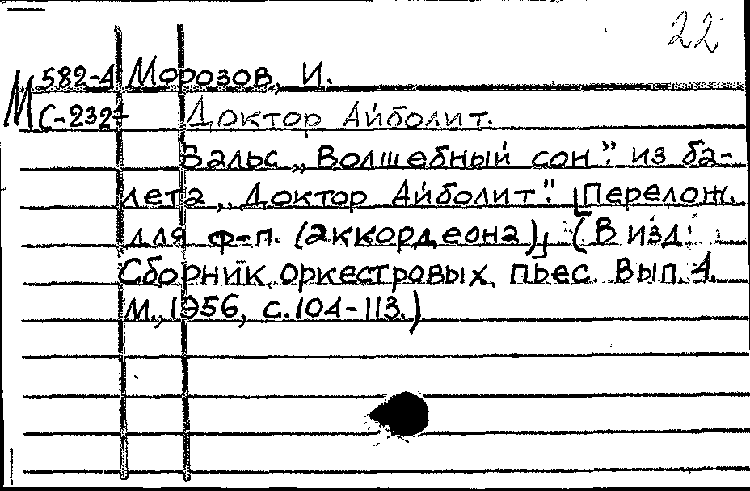 22
М 582-4 Морозов, И.
С-2327 Доктор Айболит.
Вальс „Волшебный сон". из ба-
лета „Доктор Айболит". [Перелож.
для ф-п. (аккордеона)], (В изд:
Сборник оркестровых пьес. Вып. 4.
М., 1956, с. 104-113.)